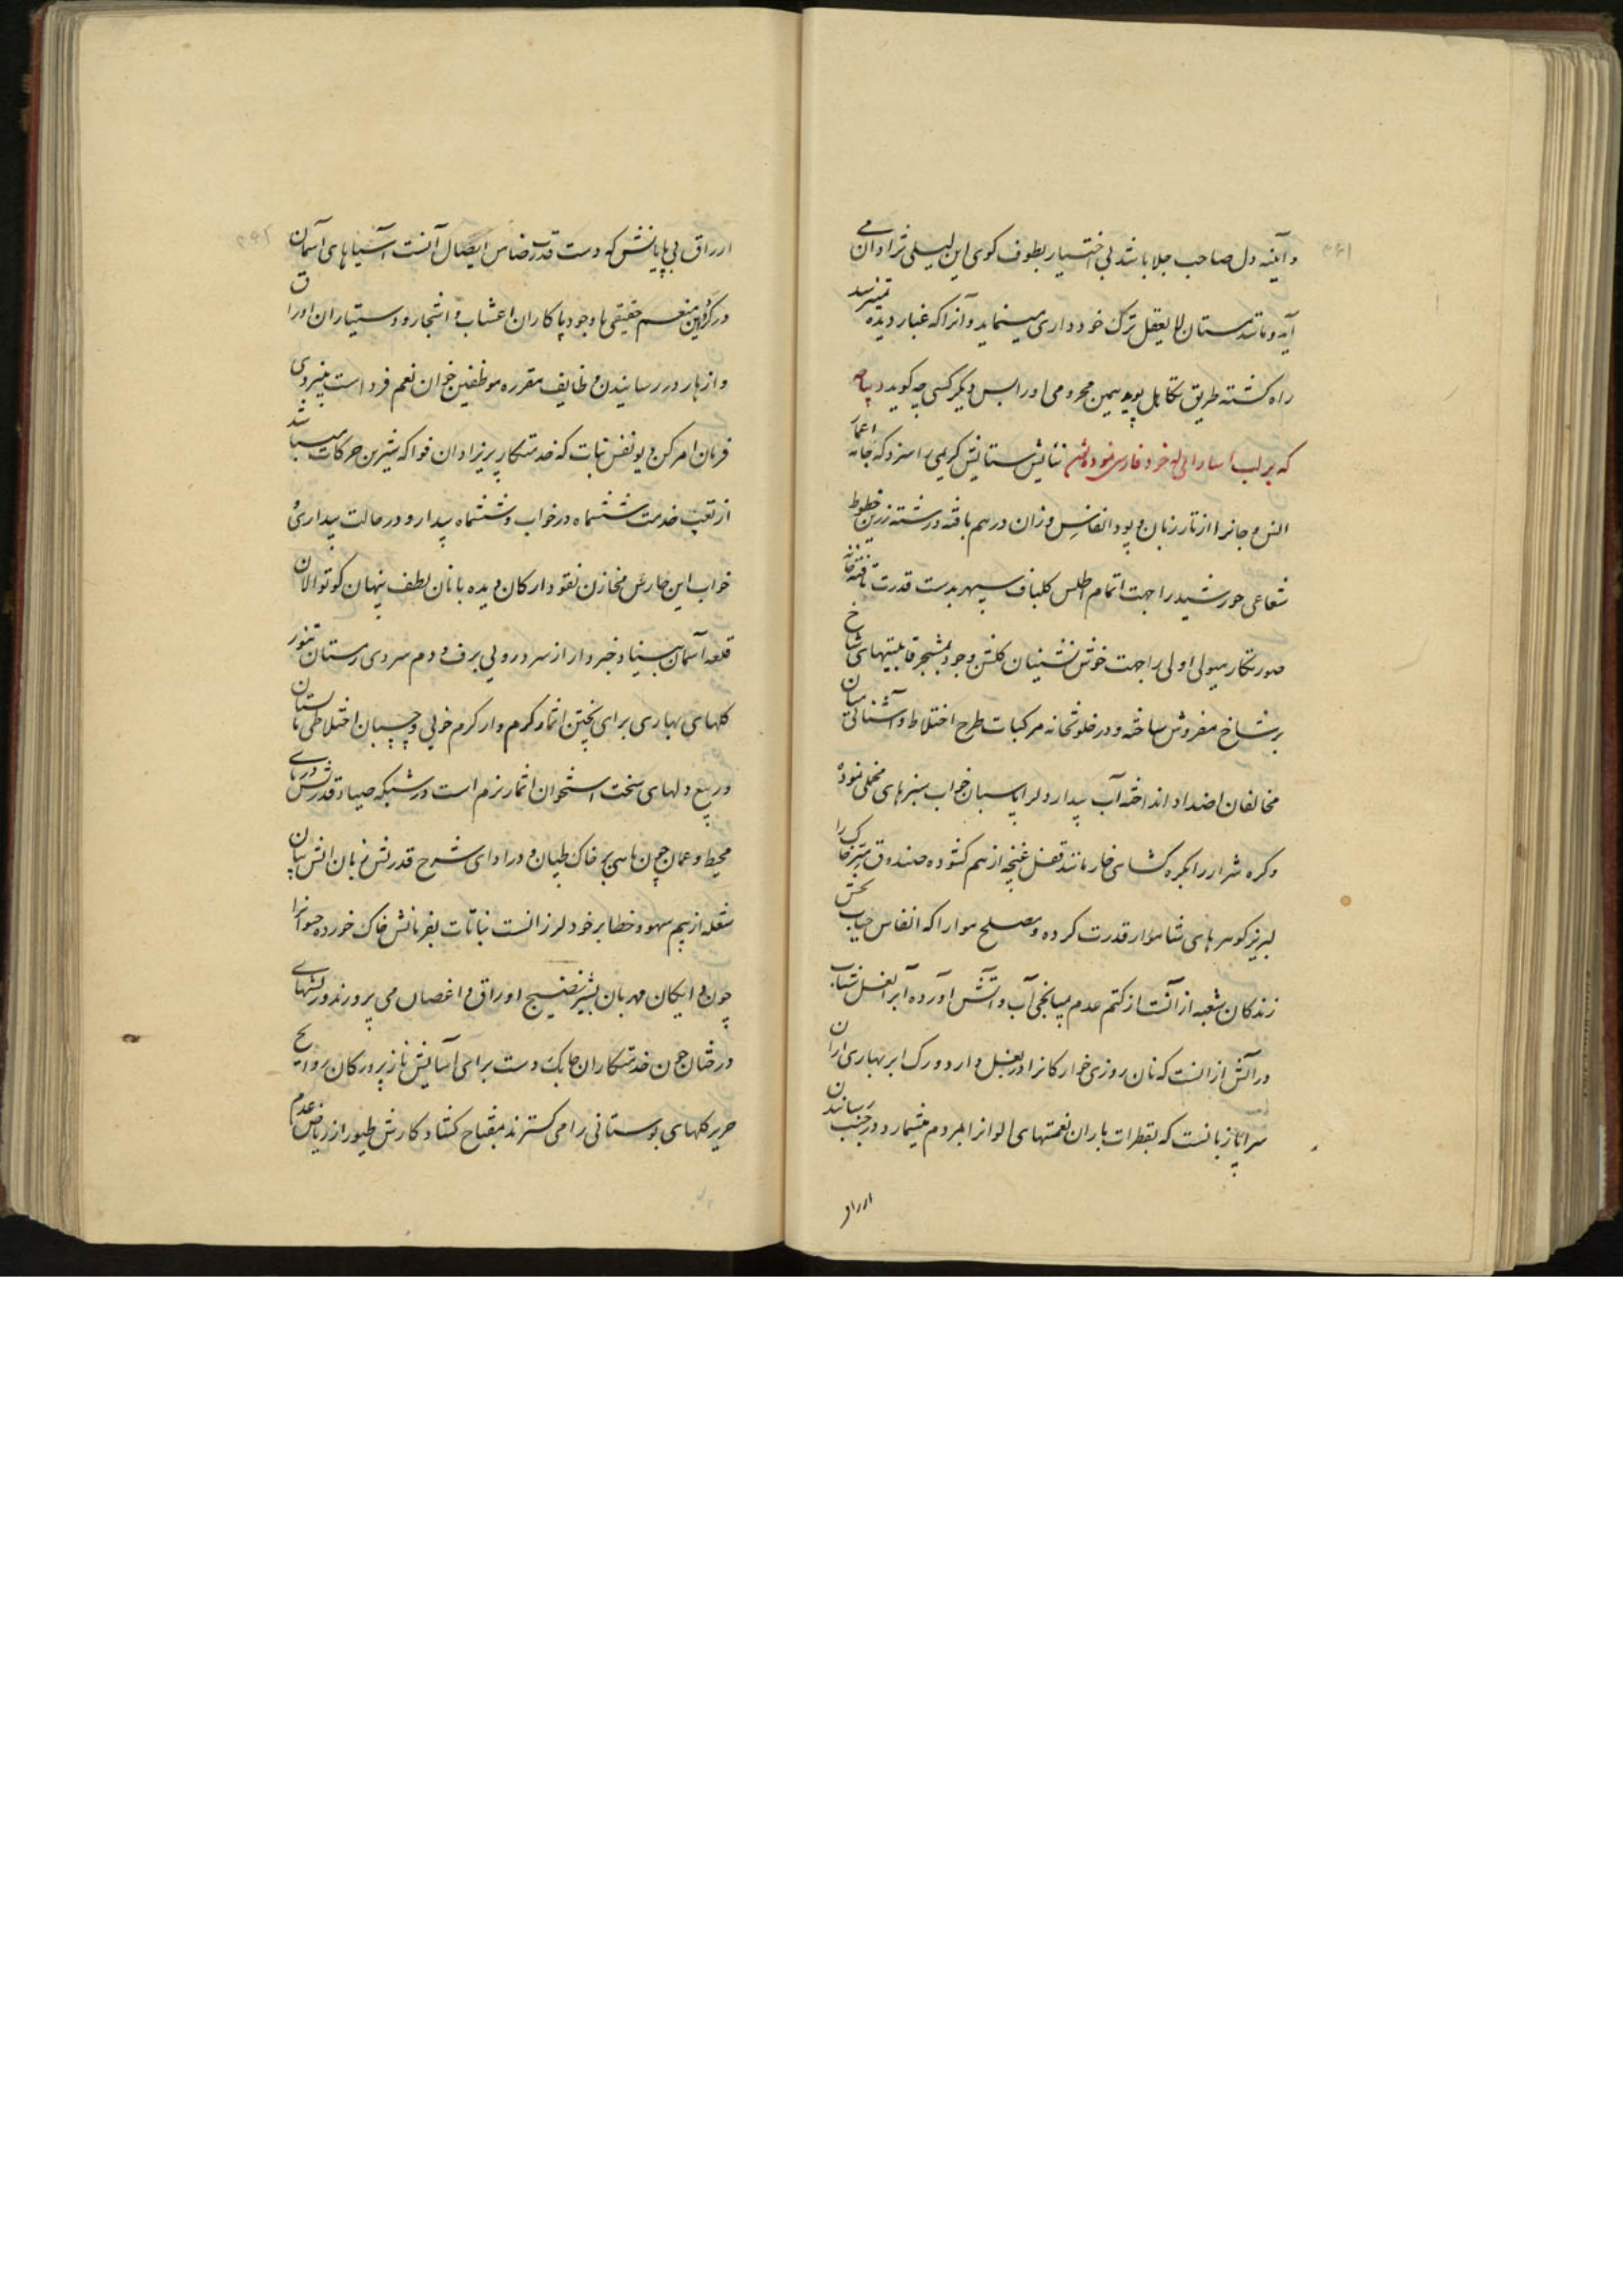 و آینه دل صاحب جلا باشد بی اختیار بطوف کوی این لیلی نژادان می
آید و مانند مستان لا یعقل ترک خود داری مینماید و آنرا که غبار دیده
راه کشته طریق تکاهل پوید همین محرومی او را بس دیگر کسی چه کوید دیباچه
که بر لب نیایش ستایش کریمی را سزد که جامه
انس و جانرا از تار زبان و پود انفاس وزان در هم بافته و رشته زرین خطوط
شعاعی خورشید را جهت اتمام اطلس کلباف سپهر بدست قدرت تافته
صورتکار هیولی اولی را جهت خوش نشینان کلشن وجود بمشجر قابلیتهای شاخ
بر شاخ مفروش ساخته و در خلوتخانه مرکبات طرح اختلاط و آشنائی میان
مخالفان اضداد انداخته آب بیدار دلرا پاسبان خواب سبزهای مخملی نموده
و کره شرار را بکره کشای خار مانند قفل غنچه از هم کشوده صندوق خاک را
لبریز کوهرهای شاهوار قدرت کرده و مصلح هوا را که انفاس حیات بخش
زندکان شعبه از آنست از کتم عدم بمیانجی آب و آتش آورده آبرا نعل شتاب
در آتش از آنست که نان روزی خوارکانرا در بغل دارد و رک ابر بهاری از آن
سراپا زبانست که بقطرات باران نعمتهای الوانرا بمردم میشمارد و در جنب رسانیدن
ارزاق
ارزاق بی پایانش که دست قدرت ضامن ایصال آنست آسیاهای آسمان
در کرو این منعم حقیقی با وجود پاکاران اعشاب و اشجار و دستیاران اوراق
و ازهار در رسانیدن وظایف مقرره موظفین خوان نعم فرد است بنیروی
فرمان امر کن و یو نفس نبات که خدمتکار پریزادان فواکه شیرین حرکات میباشد
از تعب خدمت ششماه در خواب و ششماه بیدار و در حالت بیداری و
خواب این حارس مخازن نقود ارکان دیده بانان لطف پنهان کوتوالان
قلعه آسمان بینا و خبردار از سردرویی برف و دم سردی زمستان تنور
کلهای بهاری برای پختن اثمار کرم و از کرم خویی و چسبان اختلاطی تابستان
دریغ دلهای سخت استخوان اثمار نرم است در شبکه صیاد قدرتش دریای
محیط و عمان چون ماهی بر خاک طپان و در ادای شرح قدرتش زبان آتش بیان
شعله از بیم سهو و خطا بر خود لرزانست نباتات بفرمانش خاک خورده حیوانرا
چون دایکان مهربان بشیر نضیج اوراق و اغصان می پرورند و ریشهای
درختان چون خدمتکاران چابک دست برای آسایش ناز پرورکان روایح
حریر کلهای بوستانی را می کسترند بمفتاح کشاد کارش طیور از ریاض عدم